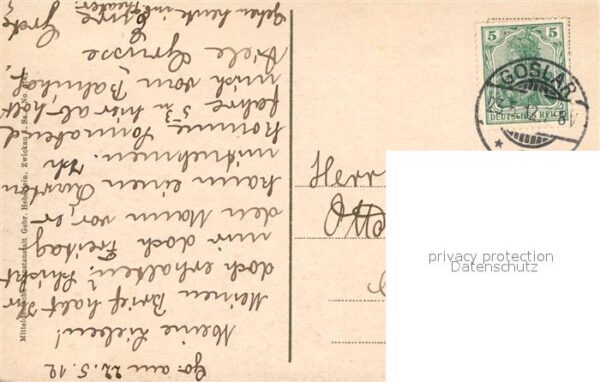 Go am 22.5.12
Meine Lieben!
Meinen Brief habt Ihr
doch erhalten? Schickt
mir doch Freitag
den Mann vor, er
kann einen Karton
mitnehmen. Ich
komme Sonnabend
fahre 5 hier ab, holt
mich vom Bahnhof.
Viele Grüsse
Eure Grete
Gehen heute ins Theater.
Mitteldeutsche Kunstanstalt Gebr.
5
5
DEUTSCHES REICH
GOSLAR
Herr
Otto
privacy protection
Datenschutz